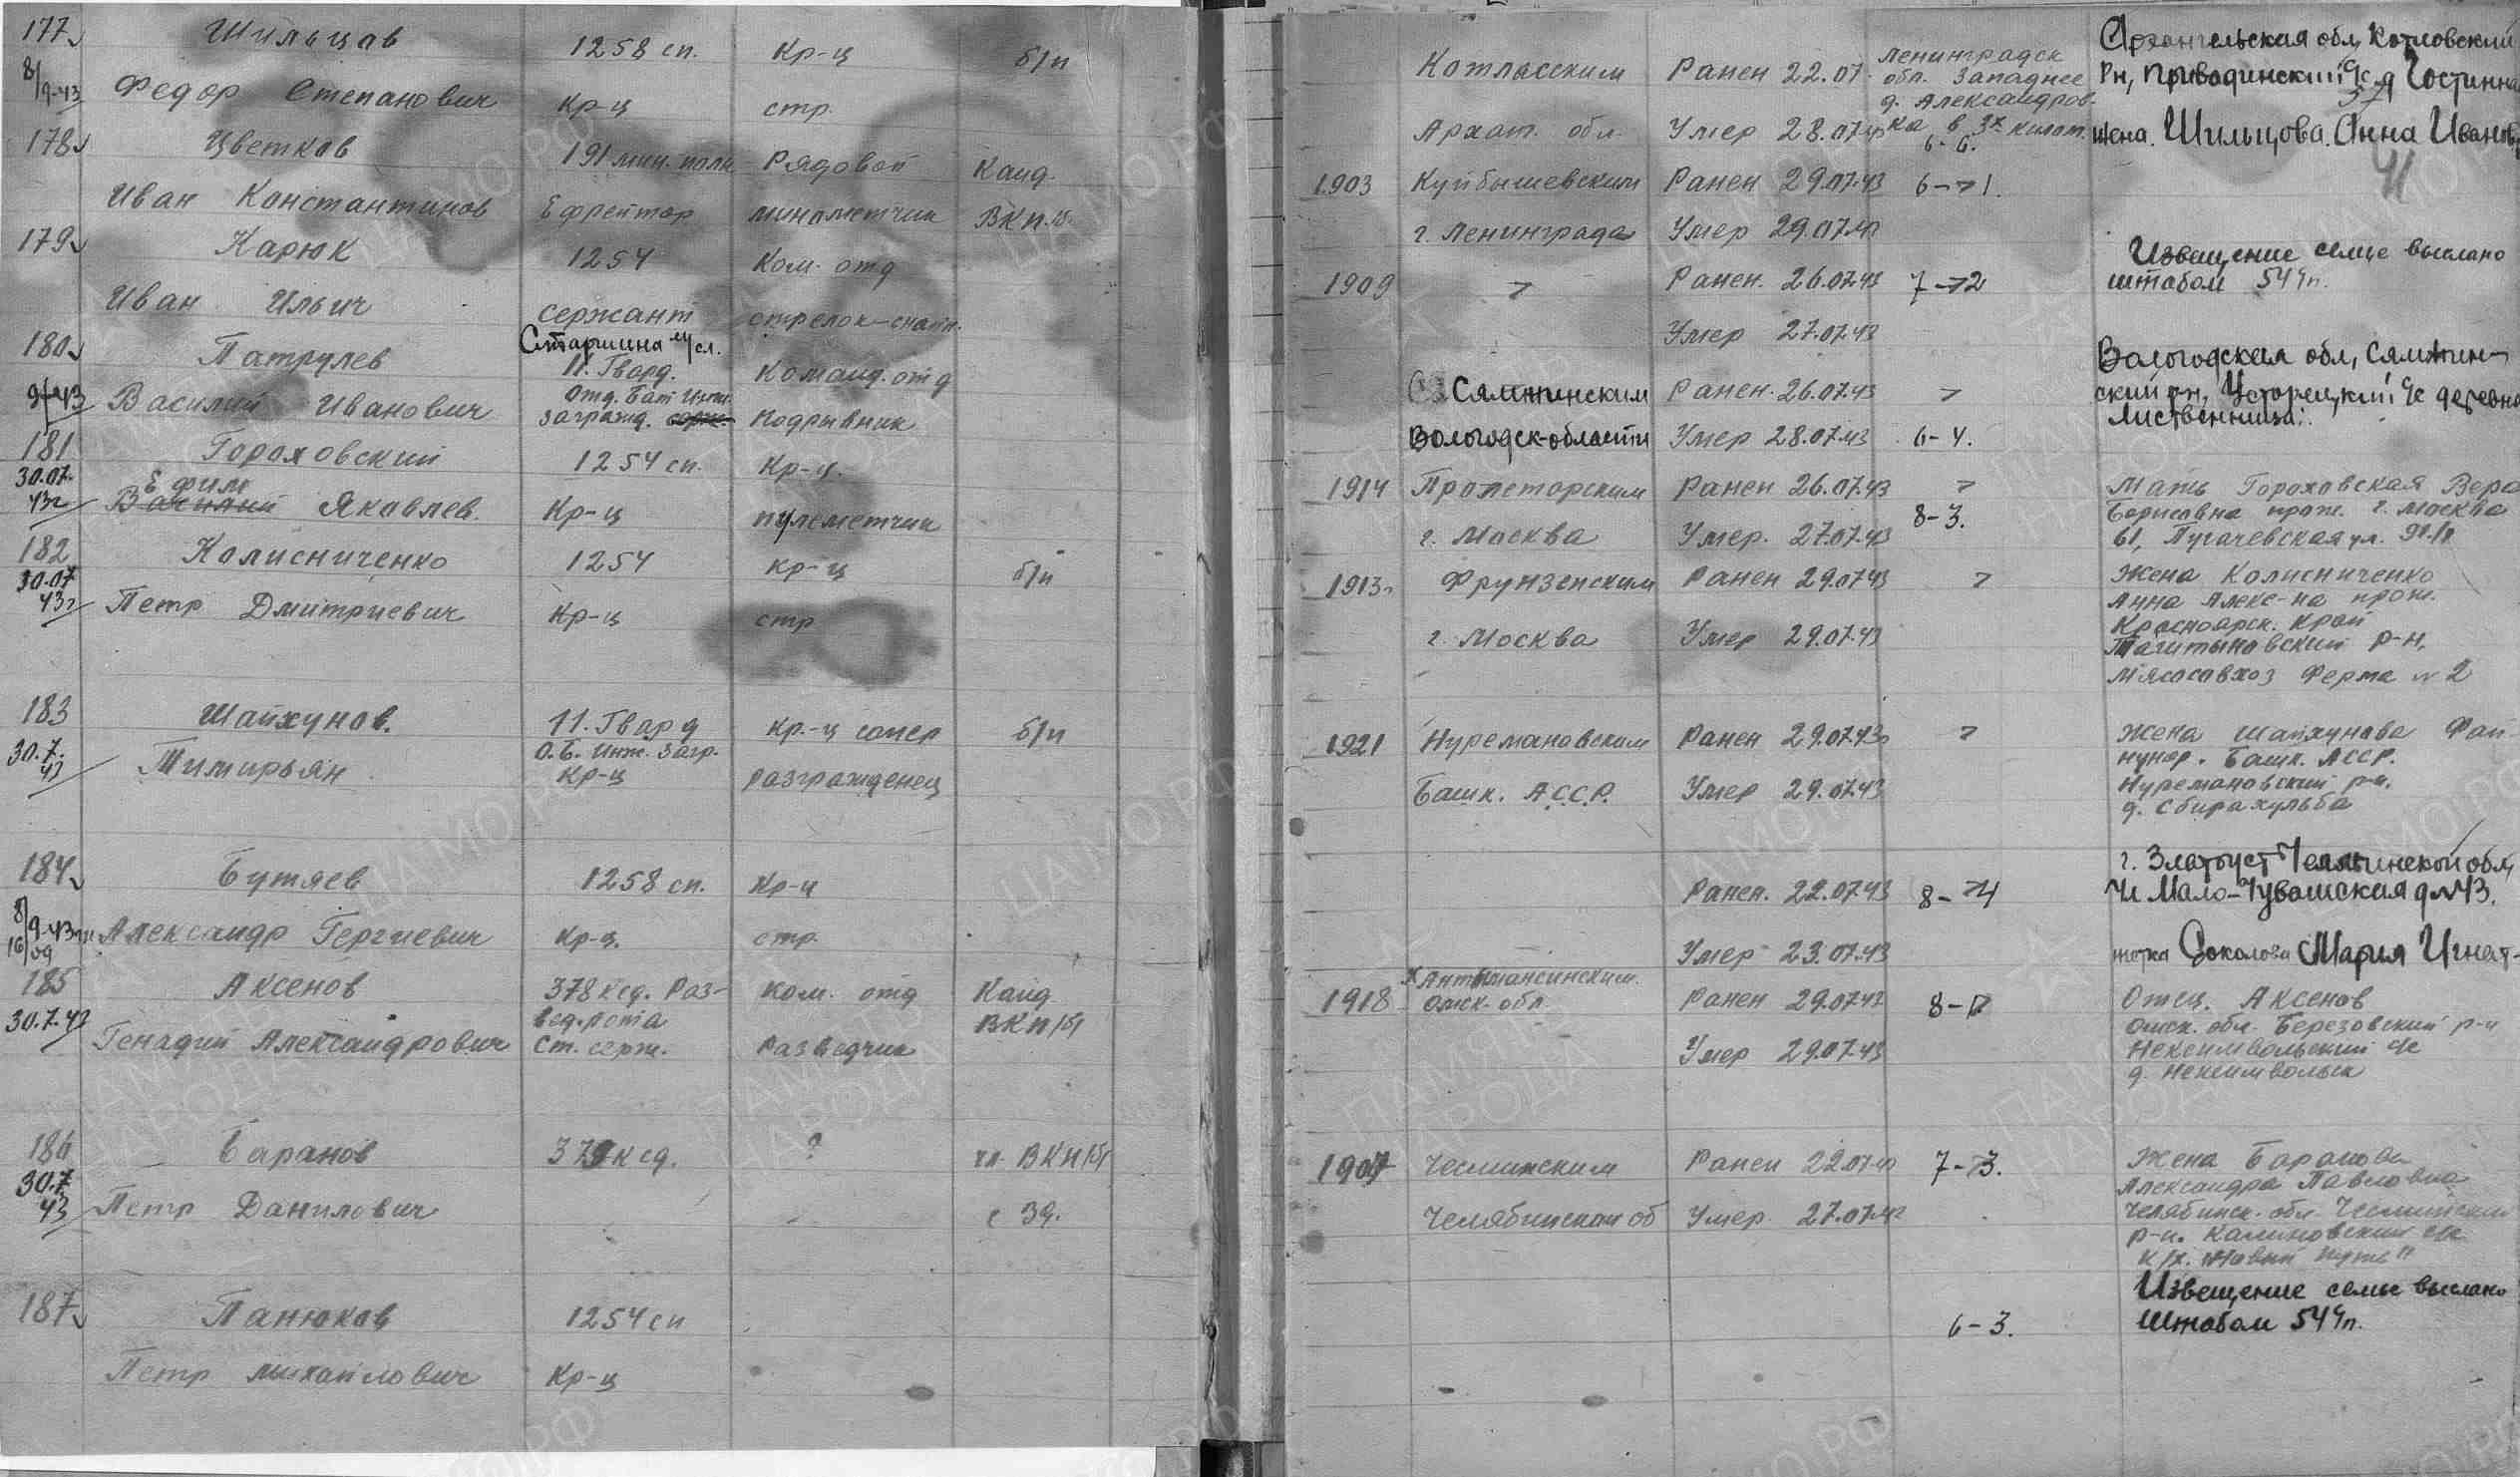 177
Шильцов
1258 сп.
Кр-ц
б/п
8/9-43
Федор Степанович
Кр-ц
стр.
178
Цветков
191 мин. полк
Рядовой
Канд.
Иван Константинов
Ефрейтор
минометчик
ВКП.б.
179
Карюк
1254
Ком. отд
Иван Ильич
сержант
стрелок-снайп.
180
Патрулев
Старшина
11. Гвард.
Команд. отд
9-43
Василий Иванович
Отд. Бат Инж.
загражд. серж.
Подрывник
181
Гороховский
1254 сп.
Кр-ц.
30.07.
43г
Ефим
Василий Яковлев.
Кр-ц
пулеметчик
182
Колисниченко
1254
кр-ц
б/п
30.07
43г
Петр Дмитриевич
Кр-ц
стр
183
Шайхунов.
11. Гвард
Кр.-ц сапер
б/п
30.7.
43
Тимирьян
О.Б. Инж. Загр.
Кр-ц
разгражденец
184
Бутяев
1258 сп.
Кр-ц
8/9-43
Александр Гергиевич
Кр-ц.
стр.
185
Аксенов
378 ксд. Раз-
вед. рота
Ком. отд
Канд
ВКП/б/
30.7.43
Генадий Александрович
Ст. серж.
Разведчик
186
Баранов
378 ксд.
?
чл. ВКП/б/
30.7
43
Петр Данилович
с 39.
187
Панюков
1254 сп
Петр михайлович
Кр-ц
Котласским
Ранен 22.07
Ленинградск
обл. Западнее
д. Александров-
ка в 3х килом.
6-6.
Архан. обл.
Умер 28.07.43
Архангельская обл, Котловский
Рн, Приводинский с/с д Гостинна
57
жена. Шильцова. Анна Иванов
41
1903
Куйбышевским
Ранен 29.07.43
6-71.
г. Ленинграда
Умер 29.07.43
1909
Ранен. 26.07.43
7-72
Умер 27.07.43
Извещение семье выслано
штабом 54 чп.
Сямжинским
Ранен. 26.07.43
Вологодск-области
Умер 28.07.43
6-4.
Вологодская обл, Сямжин-
ский рн, Усторецкий с/с деревня
Лиственница.
1914
Пролеторским
Ранен 26.07.43
8-3.
г. Москва
Умер. 27.07.43
Мать Гороховская Вера
Борисовна прож. г. Москва
61, Пугачевская ул.
1913г
Фрунзенским
Ранен 29.07.43
г. Москва
Умер 29.07.43
Жена Колисниченко
Анна Алекс-на прож.
Красноярск. край
р-н,
Мясосовхоз Ферма № 2
1921
Нуремановским
Ранен 29.07.43г
Башк. А.С.С.Р.
Умер 29.07.43
Жена Шайхунова Фай
нунар. Башк. АССР.
Нуремановский р-н.
д. Сбирахульба
Ранен. 22.07.43
8-74
Умер 23.07.43
г. Златоуст Челябинской обл,
Ул Мало-Чувашская д №43.
тетка Соколова Мария Игнат-
1918
Хантымансинским
Омск. обл.
Ранен 29.07.43
Умер 29.07.43
Отец. Аксенов
Омск. обл. Березовский р-н
Нексимвольский с/с
д. Нексимвольск
1907
Чесминским
Ранен 22.07.43
7-73.
Челябинской об
Умер. 27.07.43
Жена Баранова
Александра Павловна
Челябинск. обл. Чесминский
р-н. Калиновский с/с
к/х. "Новый путь"
6-3.
Извещение семье выслано
Штабом 54 чп.